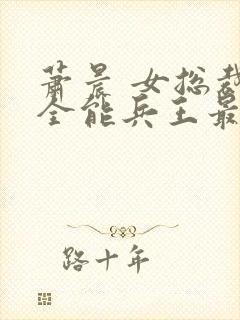 萧晨 女总裁
全能兵王最
路十年